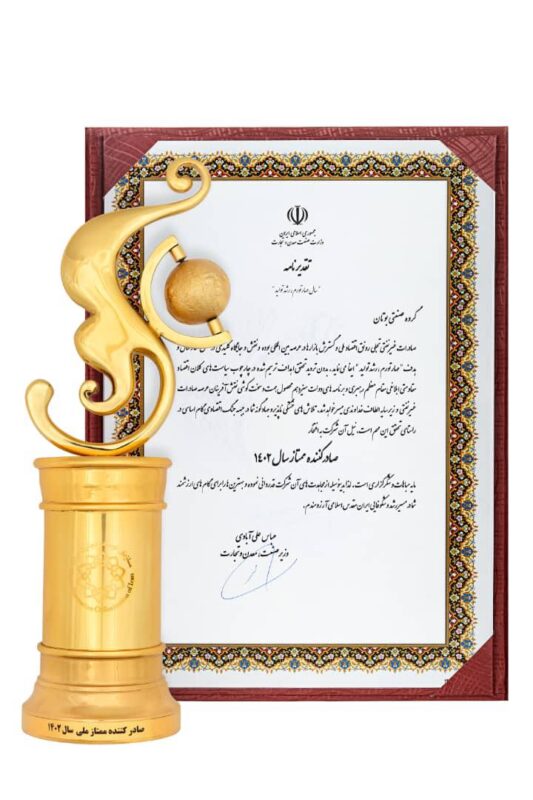 جمهوری اسلامی ایران
وزارت صنعت، معدن و تجارت
تقدیرنامه
"سال مهار تورم، رشد تولید"
گروه صنعتی بوتان
صادرات غیرنفتی تجلی رونق اقتصاد ملی و گسترش بازارها در عرصه بین المللی بوده و نقش و جایگاه کلیدی در
هدف "مهار تورم و رشد تولید" ایفا می‌نماید. بدون تردید تحقق اهداف ترسیم شده در چارچوب سیاست های کلان اقتصاد
مقاومتی ابلاغی مقام معظم رهبری و برنامه های دولت سیزدهم محصول همت و سخت کوشی نقش آفرینان عرصه صادرات
غیرنفتی و در سایه الطاف خداوندی میسر خواهد شد. تلاش های خستگی ناپذیر و جهادگونه شما در عرصه جنگ اقتصادی گام اساسی در
راستای تحقق این مهم است. نیل آن شرکت به افتخار
صادرکننده ممتاز سال ۱۴۰۲
مایه مباهات و شکرگزاری است. لذا بدینوسیله از مجاهدت های آن شرکت قدردانی نموده و بهترین ها را برای گام های ارزشمند
شما در مسیر رشد و شکوفایی ایران مقدس اسلامی آرزومندم.
عباس علی آبادی
وزیر صنعت، معدن و تجارت
of Iran
صادر کننده ممتاز ملی سال ۱۴۰۲